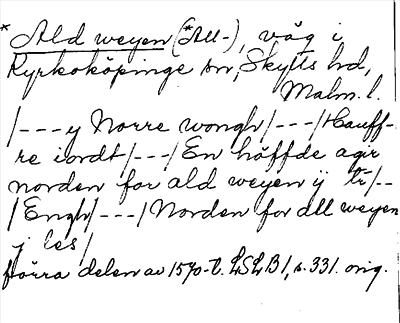 * Ald weyen (*All-), väg i
Kyrkoköpinge sn, Skytts hd,
Malm. l.
/---y Norre wongh/---/Hauff-
re iordt/---/En höffde agir
norden for ald weyen ij tr/--
/Engh/---/Norden for all weyen
j les/
förra delen av 1570-t. LSLB 1, s. 331. orig.